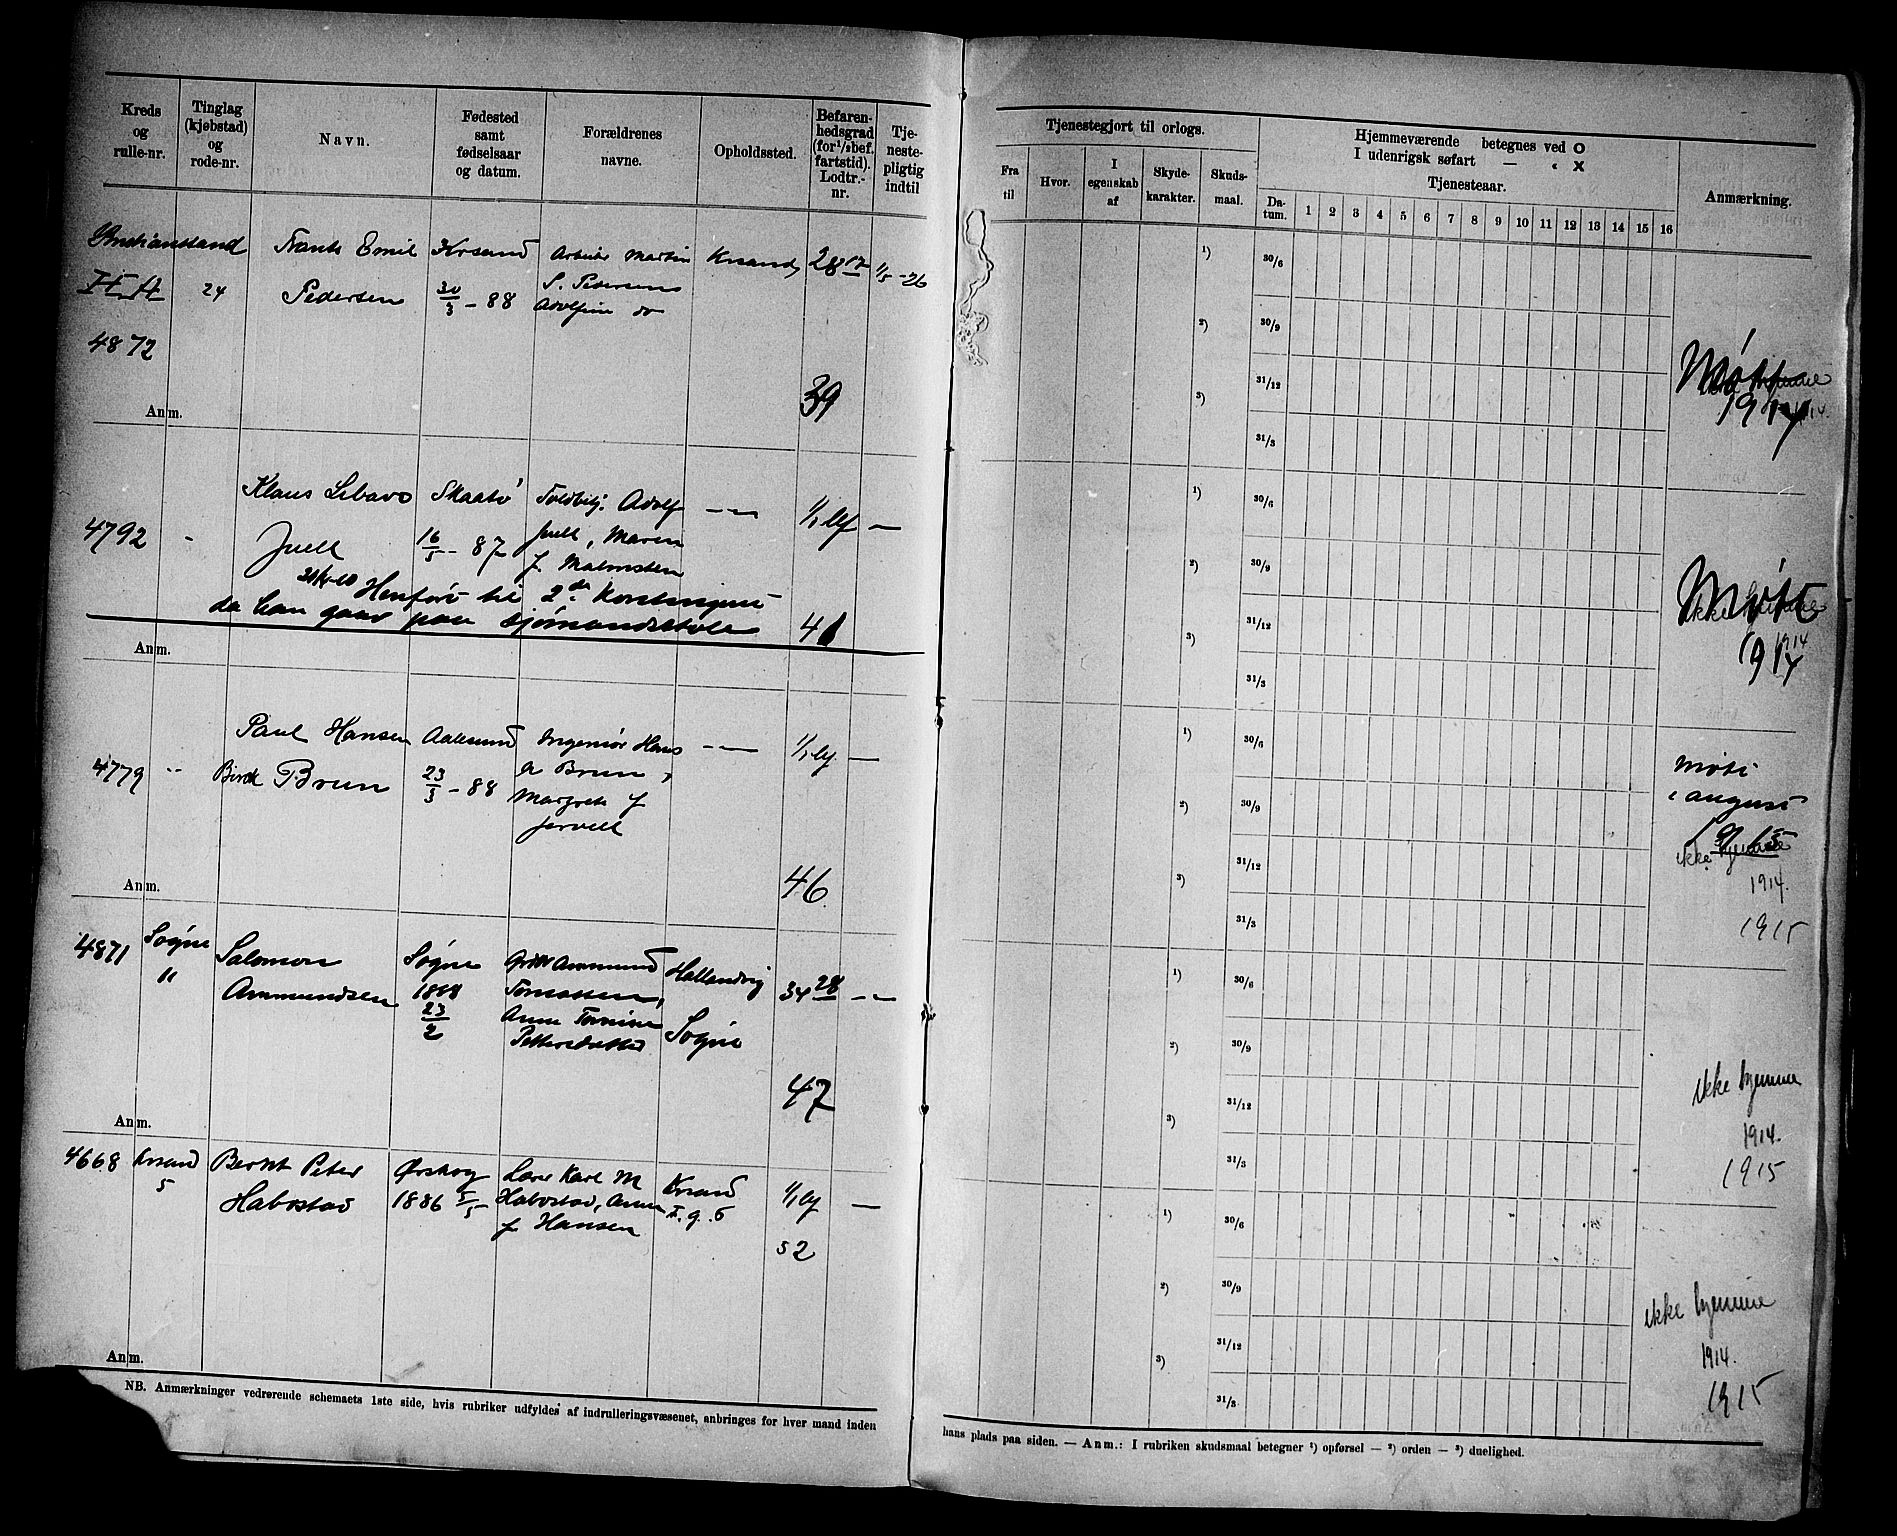 Kreds og rulle-nr.
Tinglag (kjøbstad) og rode-nr.
Navn.
Fødested samt fødselsaar og datum.
Forældrenes navne.
Opholdssted.
Befarenhedsgrad (for 1/2 bef. fartstid). Lodtr.-nr.
Tjenestepligtig indtil
Frants Emil Krsand Arbeider Martin Krsand, 28 17 1/5 - 26
24 Pedersen 30/3 - 88 S. Pedersen
Adolfine do
4872
39
Anm.
Klaus Libavo Skaatø Toldbetj. Adolf — „ — 1/1 bf —
4792 Juell 16/5 - 87 Juell, Maren
f. Malmsten
Henført til 2den
da han gaar paa sjømandsskole
41
Anm.
Paul Hansen Aalesund Ingeniør Hans — „ — 1/1 bf. —
4779 „ Birck Brun 23/3 - 88 Brun,
Margrete f
Jervell
46.
Anm.
4871 Søgne Salomon Søgne Ammund Hallandvig
" Ammundsen 1888 Tomassen, 34 28 — „ —
23/2 Anne Tomine Søgne
Pettersdatter
47
Anm.
4668 Krsand Bernt Peter Ørskog Karl M Krsand
5 Habostad 1886 5/5 Habostad, Anna 1/1 bf —
f Hansen
52
Anm.
NB. Anmærkninger vedrørende schemaets 1ste side, hvis rubriker udfyldes af indrulleringsvæsenet, anbringes for hver mand inden
Tjenestegjort til orlogs.
Fra til
Hvor.
I egenskab af
Skydekarakter.
Skudsmaal.
Hjemmeværende betegnes ved O
I udenrigsk søfart — „ X
Tjenesteaar.
Datum. 1 2 3 4 5 6 7 8 9 10 11 12 13 14 15 16
Anmærkning.
1) 30/6
2) 30/9
3) 31/12
31/3
Møtt
1914
1) 30/6
2) 30/9
3) 31/12
31/3
Møtt
ikke hjemme
1914
1914
1) 30/6
2) 30/9
3) 31/12
31/3
Møtt
i august
1915
ikke hjemme
1914.
1915
1) 30/6
2) 30/9
3) 31/12
31/3
ikke hjemme
1914.
1915
1) 30/6
2) 30/9
3) 31/12
31/3
ikke hjemme
1914.
1915
hans plads paa siden. — Anm.: I rubriken skudsmaal betegner 1) opførsel — 2) orden — 3) duelighed.